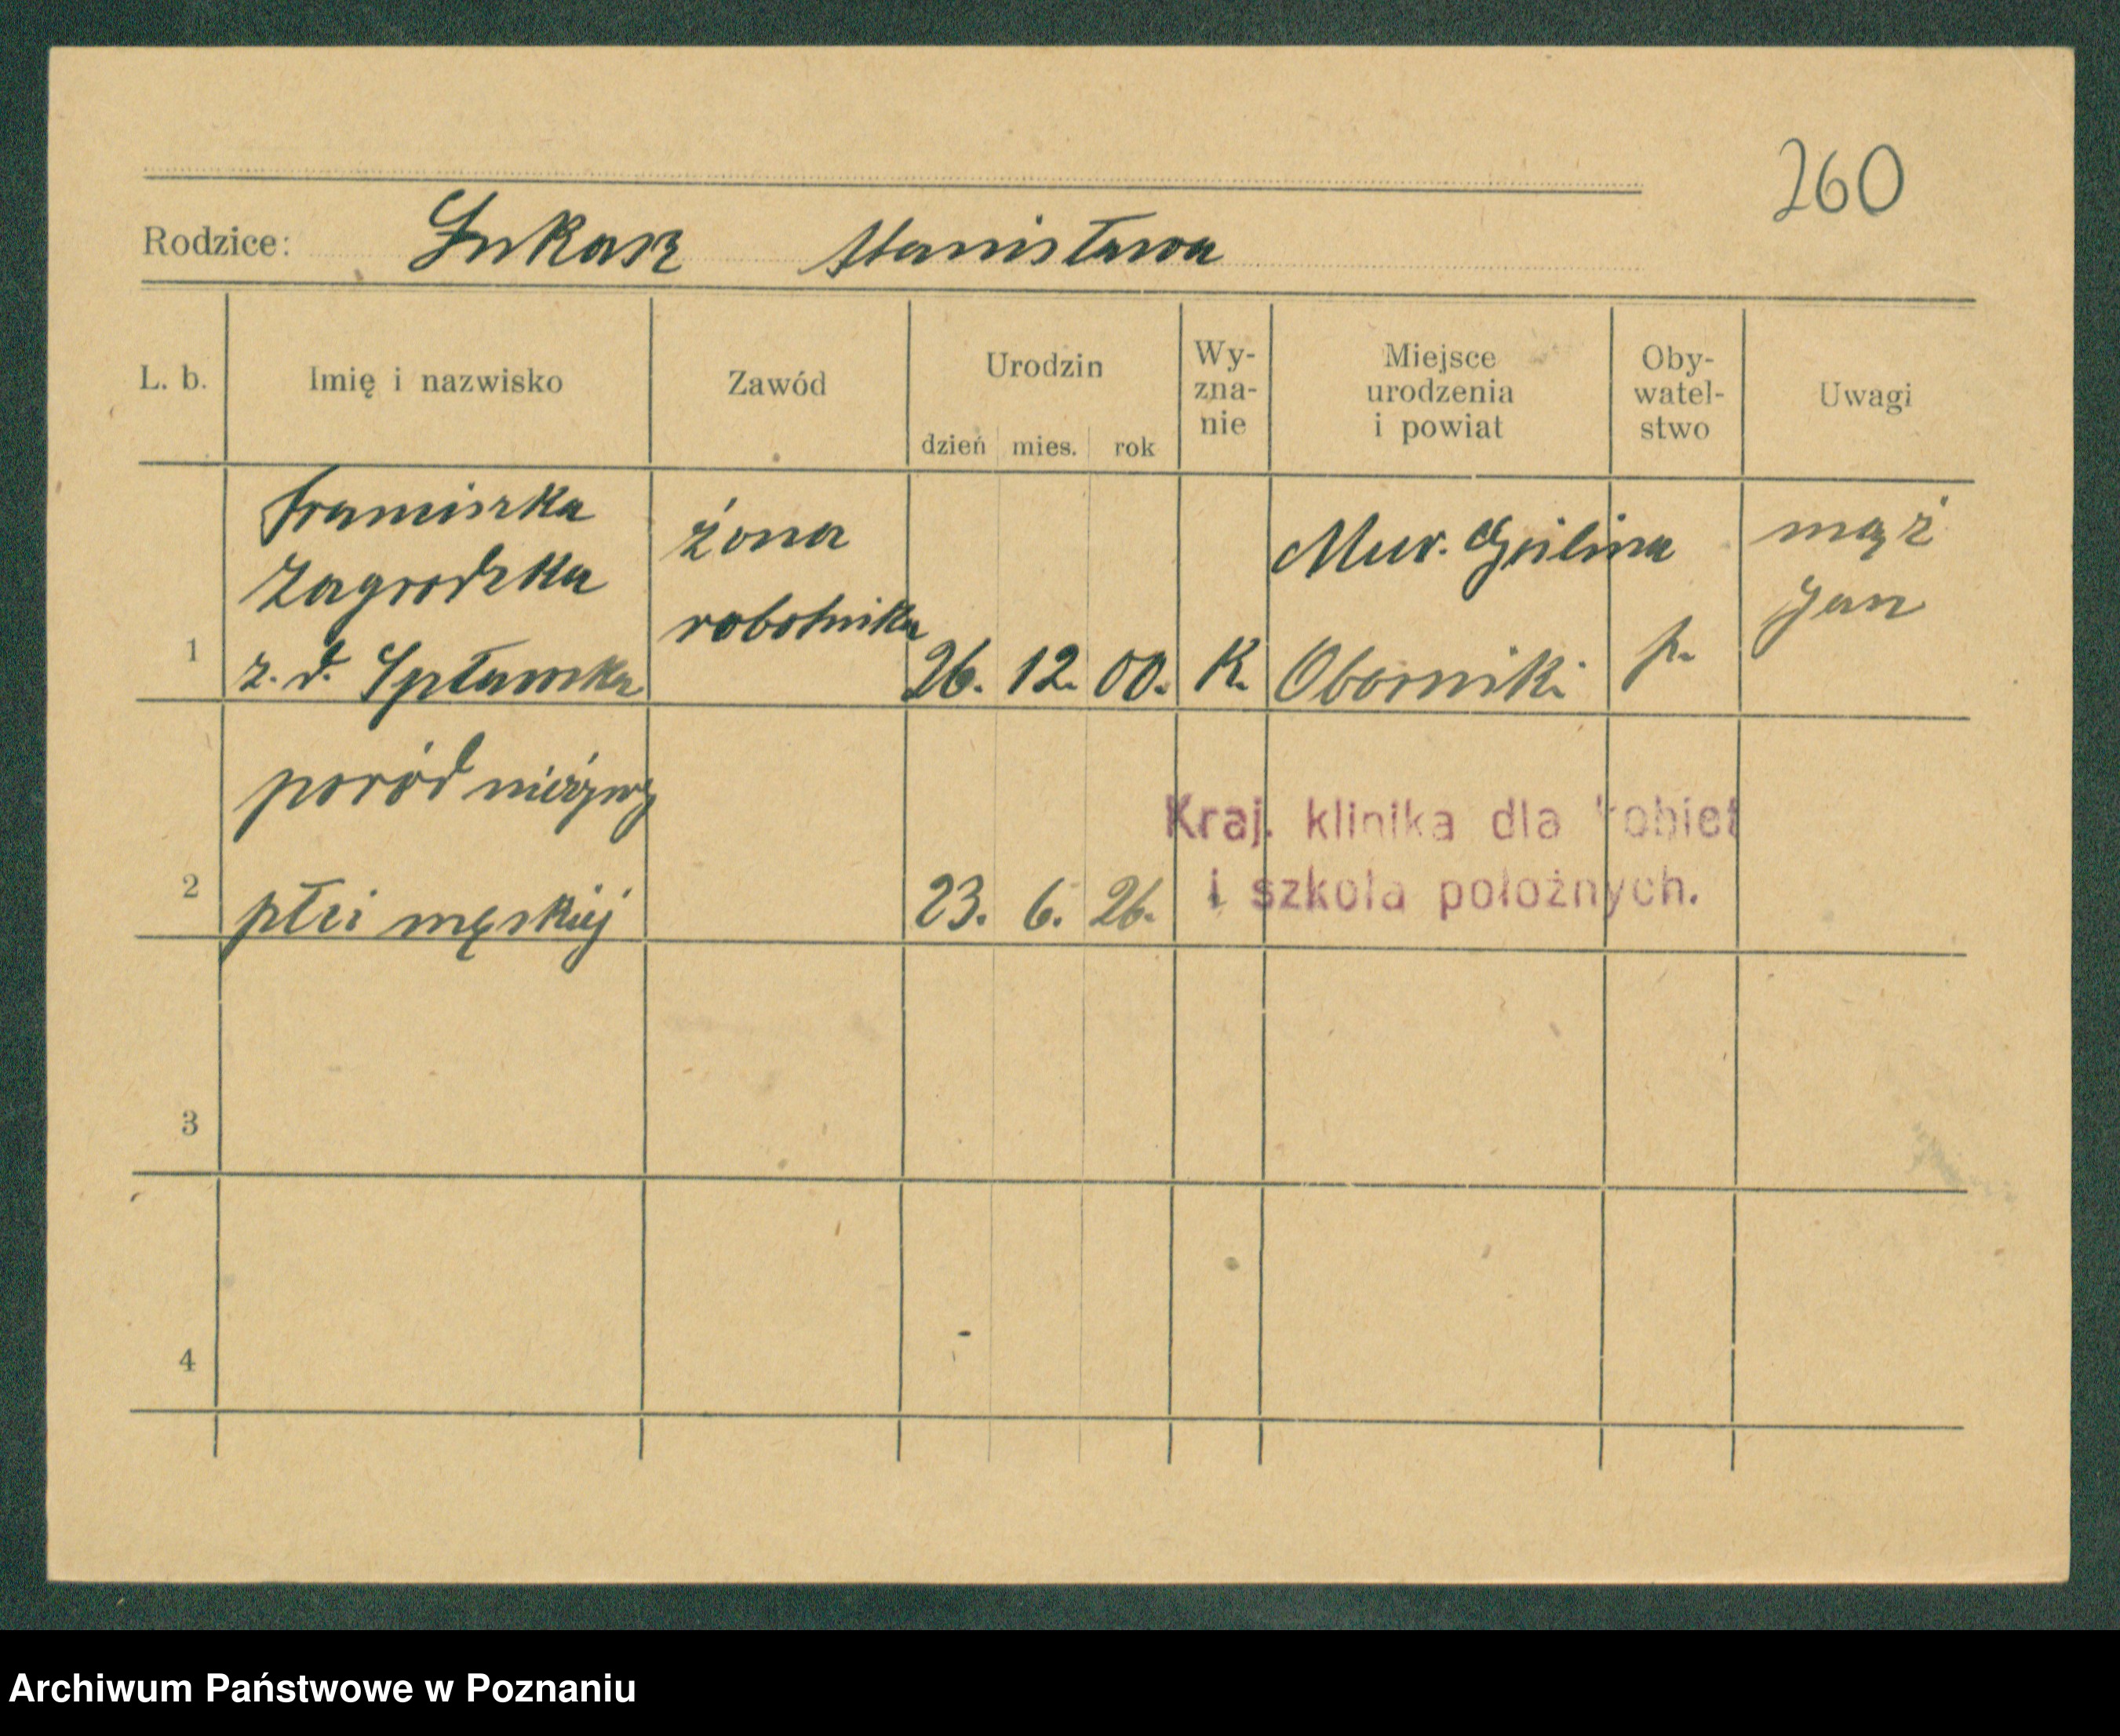 260
Rodzice: Łukasz Stanisława
L. b.
Imię i nazwisko
Zawód
Urodzin
dzień mies. rok
Wy-
zna-
nie
Miejsce
urodzenia
i powiat
Oby-
watel-
stwo
Uwagi
1
Franciszka
Zagrodzka
z. d. Spławska
żona
robotnika
26. 12. 00.
K.
Mur. Goślina
Oborniki
p.
mąż
Jan
2
poród nieżywy
płci męskiej
23. 6. 26.
Kraj. klinika dla kobiet
i szkoła położnych.
3
4
Archiwum Państwowe w Poznaniu